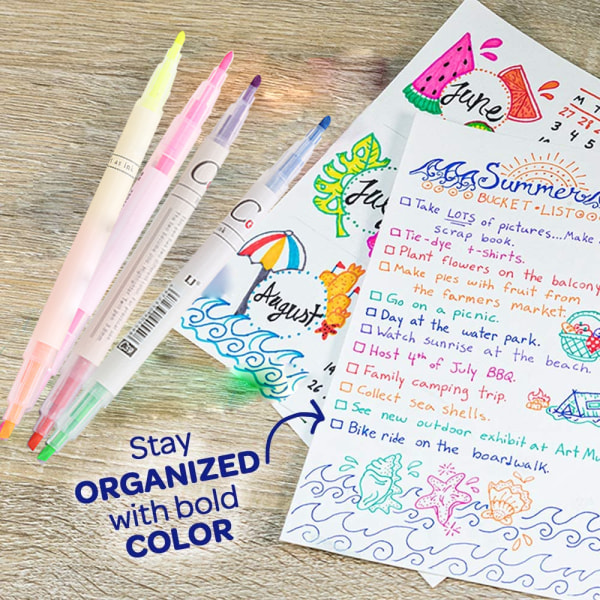 June
M T
27 28
3 4 5
August
Summer
BUCKET LIST
Take LOTS of pictures...Make
scrap book.
Tie-dye t-shirts.
Plant flowers on the balcony
Make pies with fruit from
the farmers market.
Go on a picnic.
Day at the water park.
Watch sunrise at the beach.
Host 4th of July BBQ.
Family camping trip.
Collect sea shells.
See new outdoor exhibit at Art Mu
Bike ride on the boardwalk.
Stay
ORGANIZED
with bold
COLOR